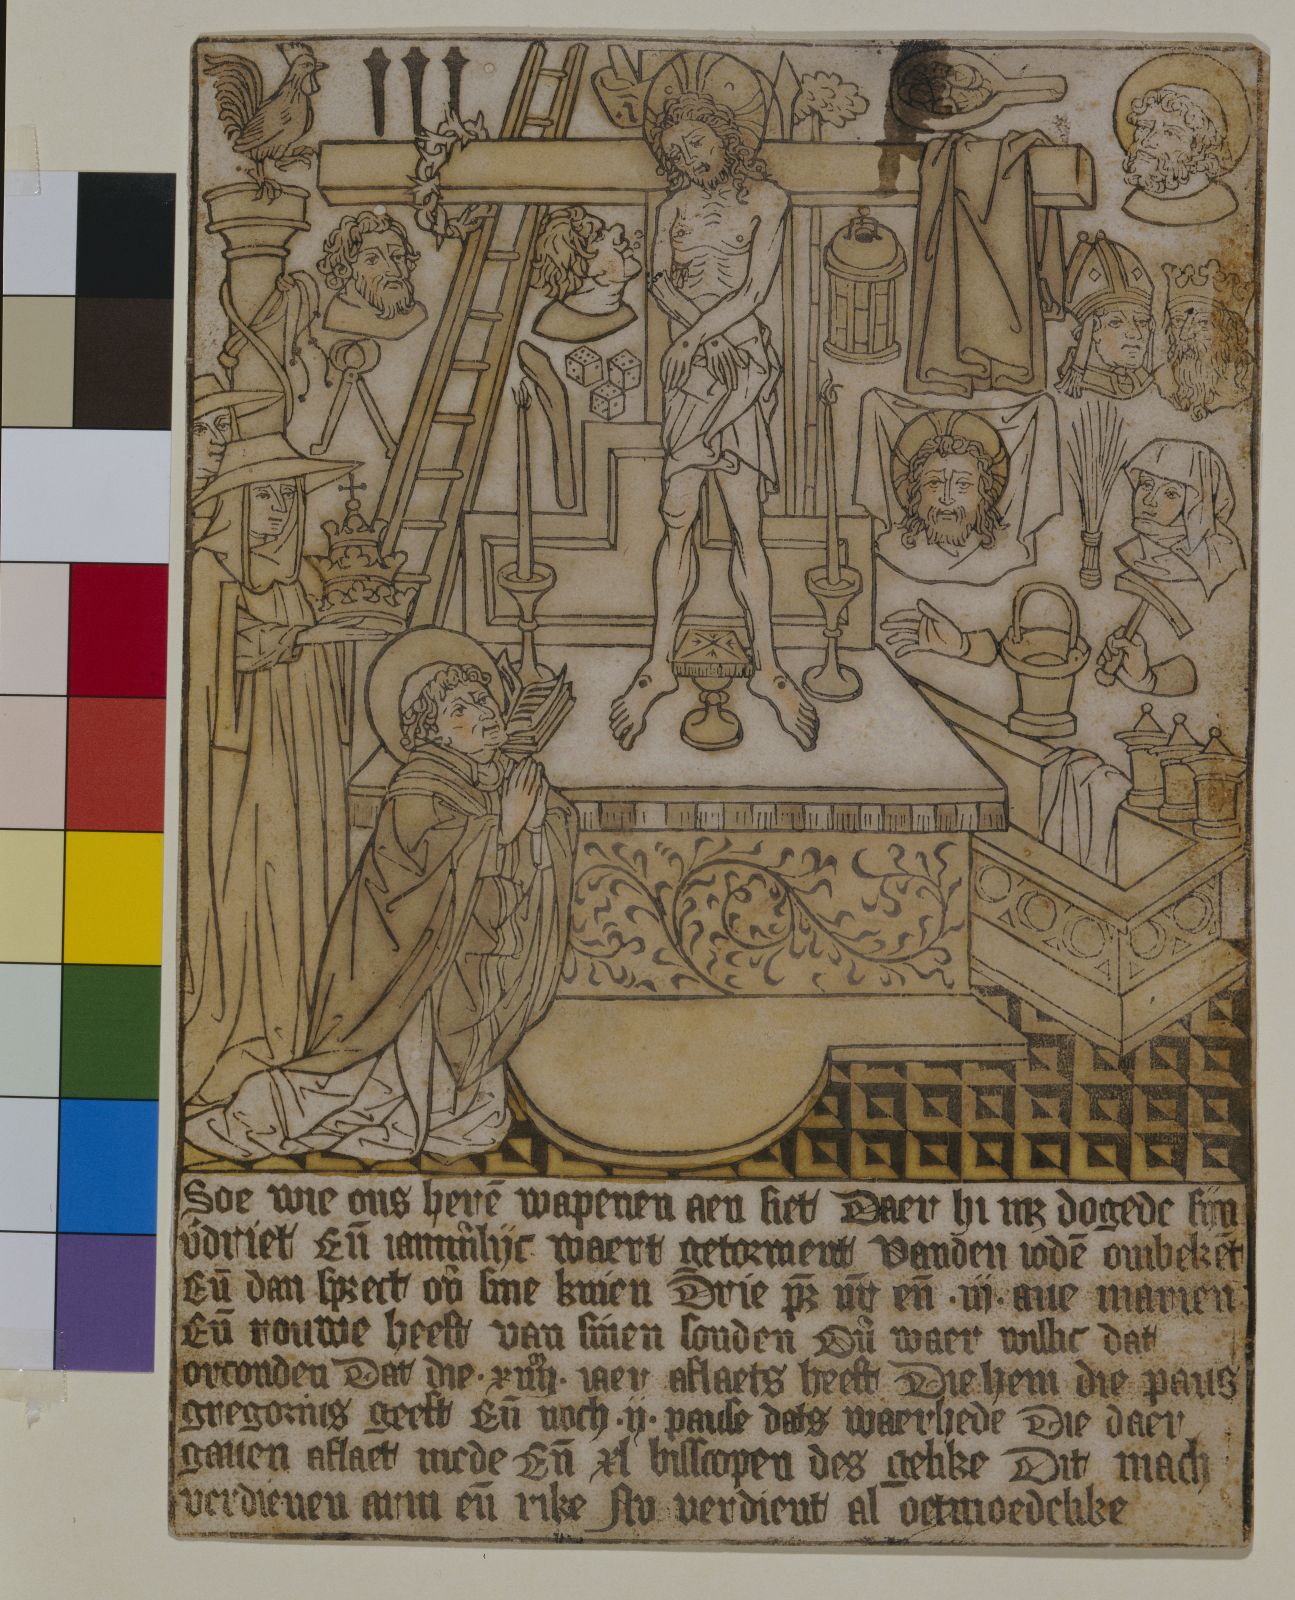 Soe wie ons herē wapenen aen siet Daer hi mz dogede sijn
v̄driet Eñ iāmerlijc waert getorment Vanden iodē onbekēt
Eñ dan sprect op sine knien Drie pr̄ nr̄ eñ .iij. aue marien
Eñ rouwe heeft van sinen sonden Dū waer willic dat
orconden Dat die .xiiijᵐ. iaer aflaets heeft Die hem die paus
gregorius geeft Eñ noch .ij. pause dats waerhede Die daer
gauen aflaet mede Eñ xl bisscopen des gelike Dit mach
verdienen arm eñ rike Nv verdient al oetmoedelike